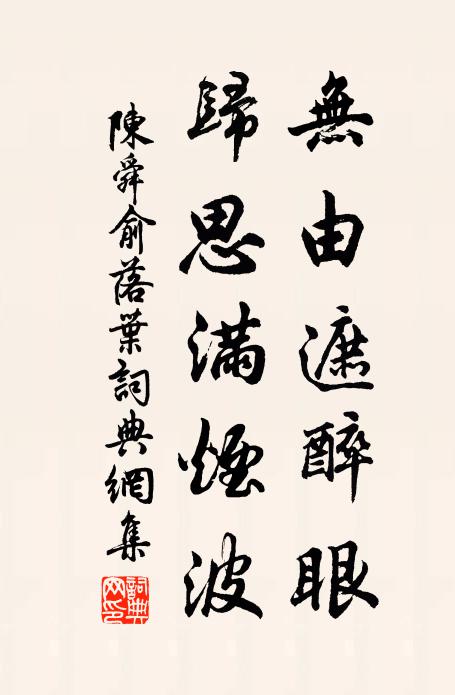 無由遮醉眼
歸思滿煙波
陳舜俞落葉詞典網集
詞典網印